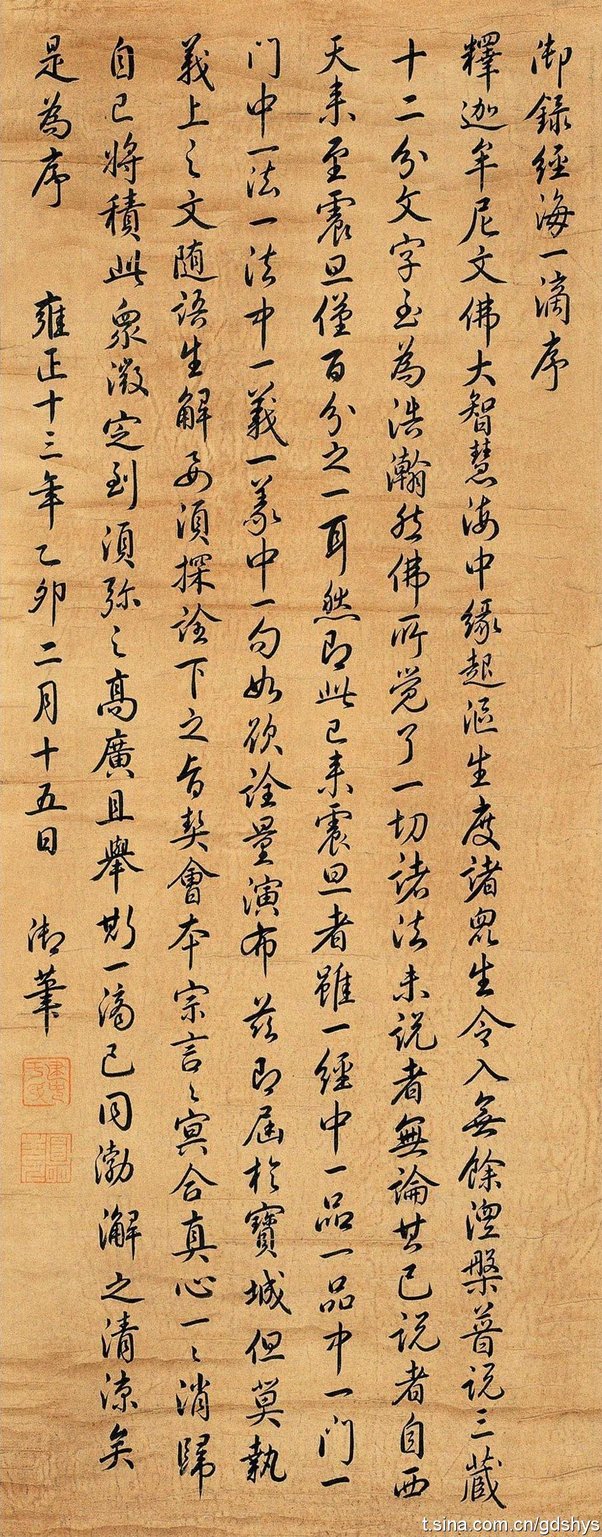 御録經海一滴序
釋迦牟尼文佛大智慧海中緣起漚生度諸眾生令入無餘涅槃普説三藏
十二分文字至為浩瀚然佛所覚了一切諸法未説者無論其已説者自西
天来至震旦僅百分之一耳然即此已来震旦者雖一經中一品一品中一门一
门中一法一法中一義一義中一句如欲詮量演布茲即届於寶城但莫執
義上之文随語生解要須探詮下之旨契會本宗言〻冥合真心一〻消歸
自己將積此眾微定到須弥之高廣且舉斯一滴已同渤澥之清涼矣
是為序
雍正十三年乙卯二月十五日
御筆
t.sina.com.cn/gdshys